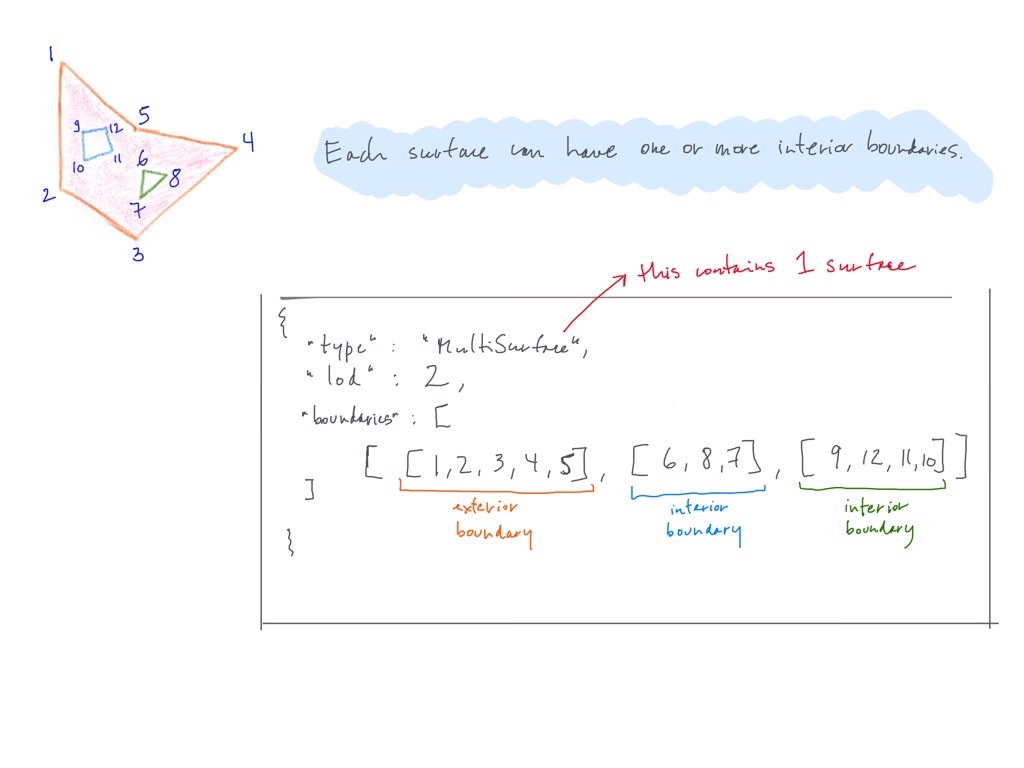 1
5
4
9
12
10
11
6
8
7
2
3
Each surface can have one or more interior boundaries.
this contains 1 surface
{
"type" : "MultiSurface",
"lod" : 2,
"boundaries" : [
[ [1,2,3,4,5], [6,8,7], [9,12,11,10] ]
]
exterior boundary
interior boundary
interior boundary
}